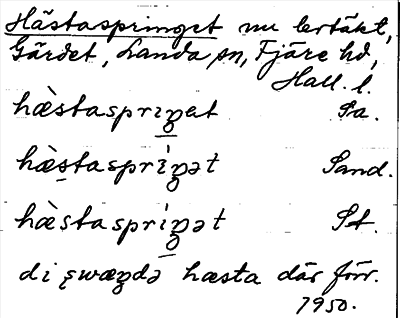 Hästaspringet nu lertäkt,
Gärdet, Landa sn, Fjäre hd,
Hall. l.
hæ̀staspriŋat Pa.
hæ̀stasprìŋət Sand.
hæ̀staspriŋət St.
di swæŋdə hæsta där förr.
1950.